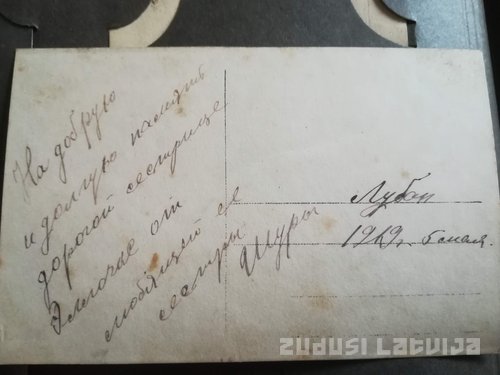 На добрую
и долгую память
дорогой сестрице
от
любящей ее
сестры
Шуры
Лубан
1919г. 6 мая.
ZUDUSI LATVIJA